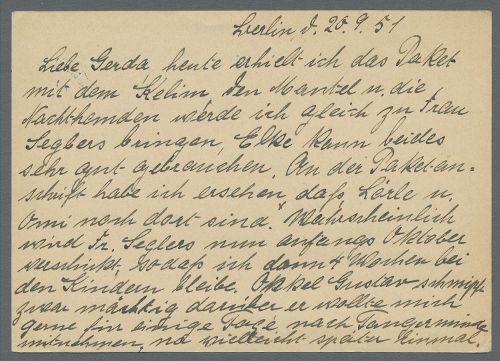 Berlin d. 20.9.51
Liebe Gerda, heute erhielt ich das Paket
mit dem Kelim den Mantel u. die
Nachthemden werde ich gleich zu Frau
Seglers bringen, Elke kann beides
sehr gut gebrauchen. An der Paketan-
schrift habe ich ersehen daß Lörle u.
Omi noch dort sind. Wahrscheinlich
wird Fr. Seglers nun anfangs Oktober
verschickt, sodaß ich dann 4 Wochen bei
den Kindern bleibe. Onkel Gustav schimpft
zwar mächtig darüber er wollte mich
gerne für einige Tage nach Tangermünde
mitnehmen, na vielleicht später einmal.